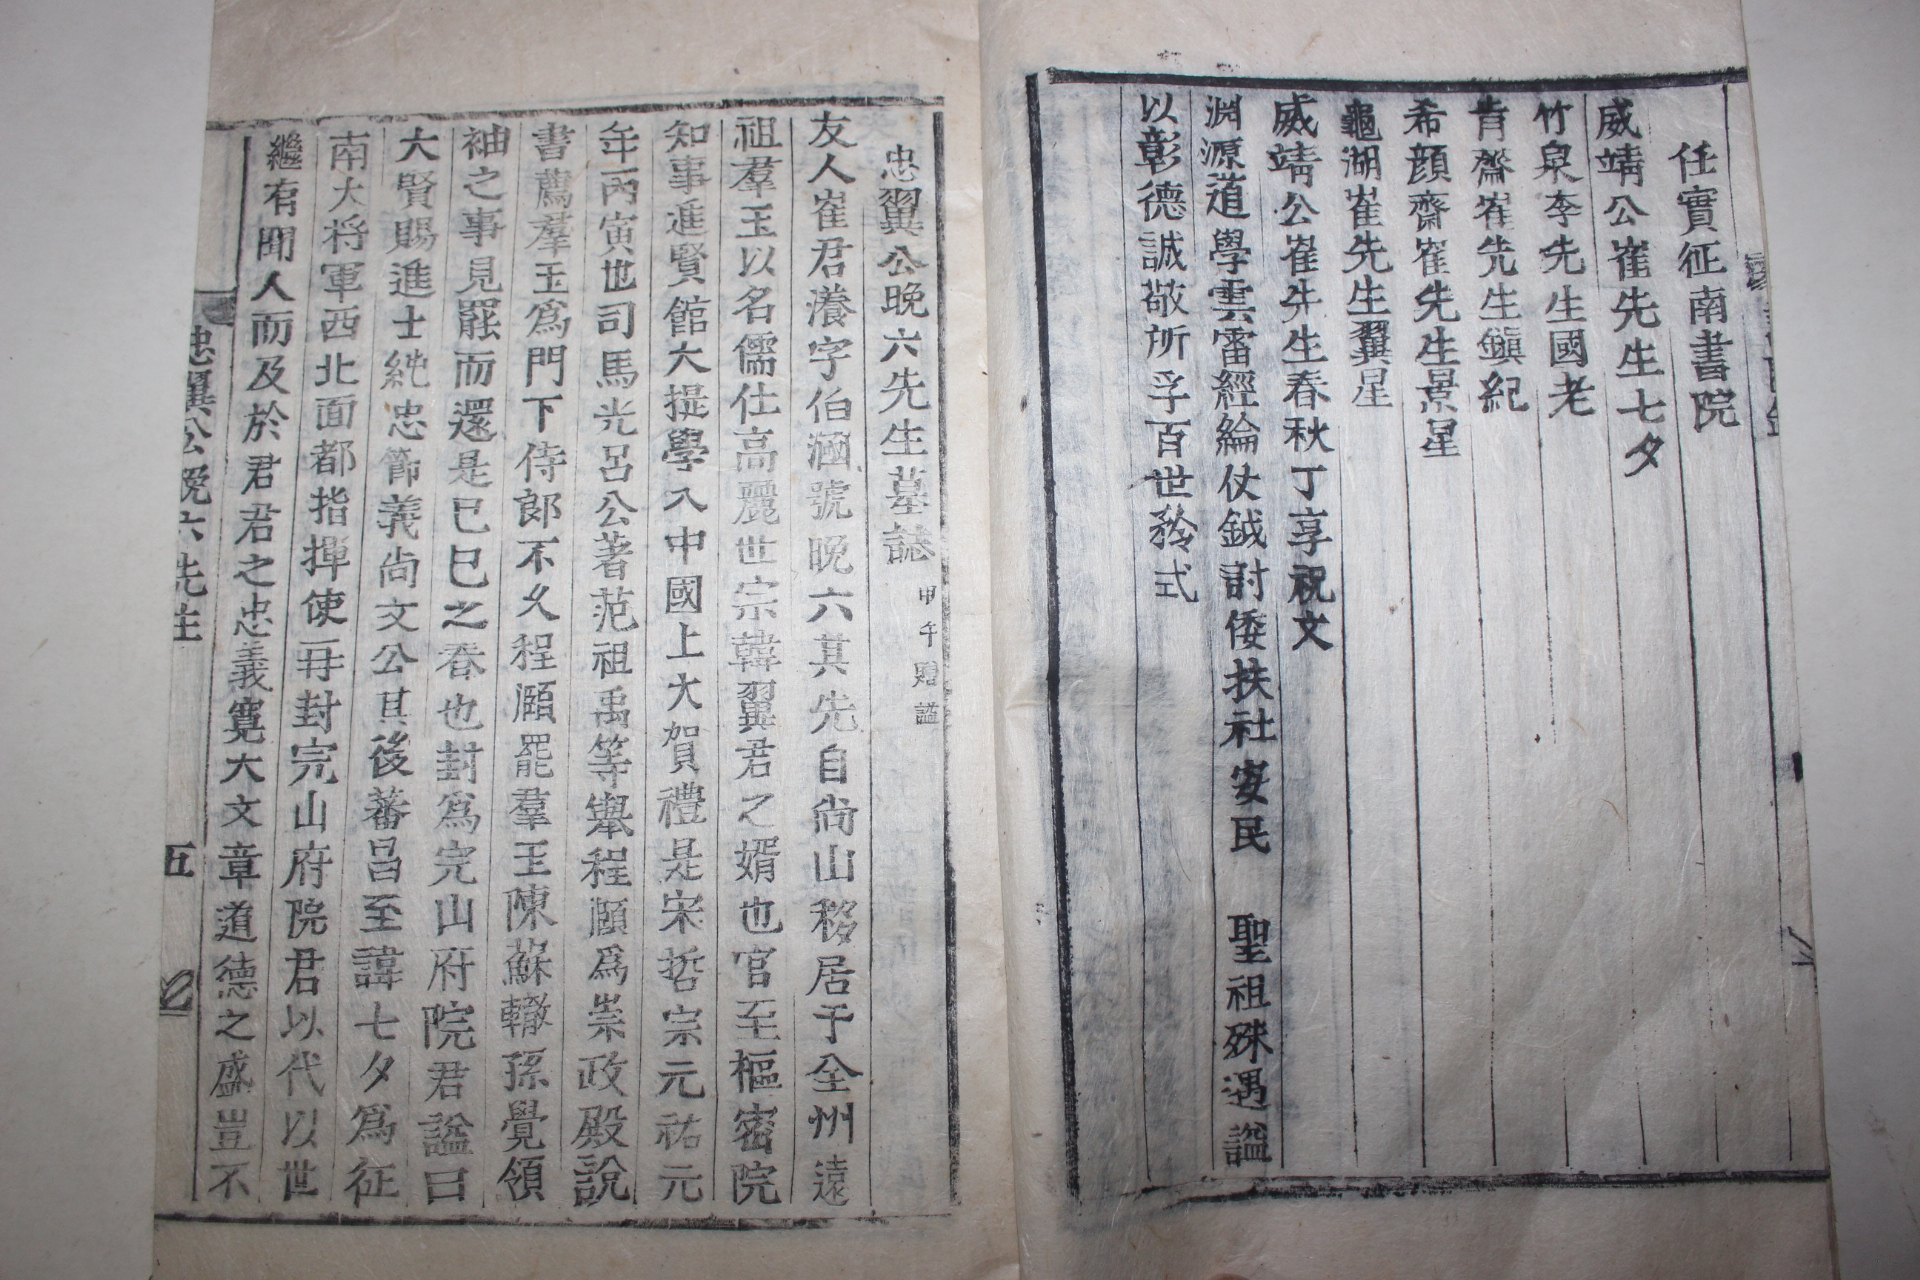 任實征南書院
威靖公崔先生七夕
竹泉李先生國老
肯齋崔先生鎭紀
希顔齋崔先生景星
龜湖崔先生翼星
威靖公崔先生春秋丁享祝文
淵源道學雲雷經綸仗鉞討倭扶社安民 聖祖殊遇謚
以彰德誠敬所孚百世矜式
忠翼公晩六先生墓誌 甲午贈謚
友人崔君瀁字伯涵號晩六其先自尙山移居于全州遠
祖羣玉以名儒仕高麗世宗韓翼君之婿也官至樞密院
知事進賢館大提學入中國上大賀禮是宋哲宗元祐元
年丙寅也司馬光呂公著范祖禹等舉程頤爲崇政殿說
書薦羣玉爲門下侍郞不久程頤罷羣玉陳蘇轍孫覺領
袖之事見罷而還是己巳之春也封爲完山府院君謚曰
大賢賜進士純忠節義尙文公其後蕃昌至諱七夕爲征
南大将軍西北面都指揮使再封完山府院君以代以世
繼有聞人而及於君君之忠義寬大文章道德之盛豈不
忠翼公晩六先生 五